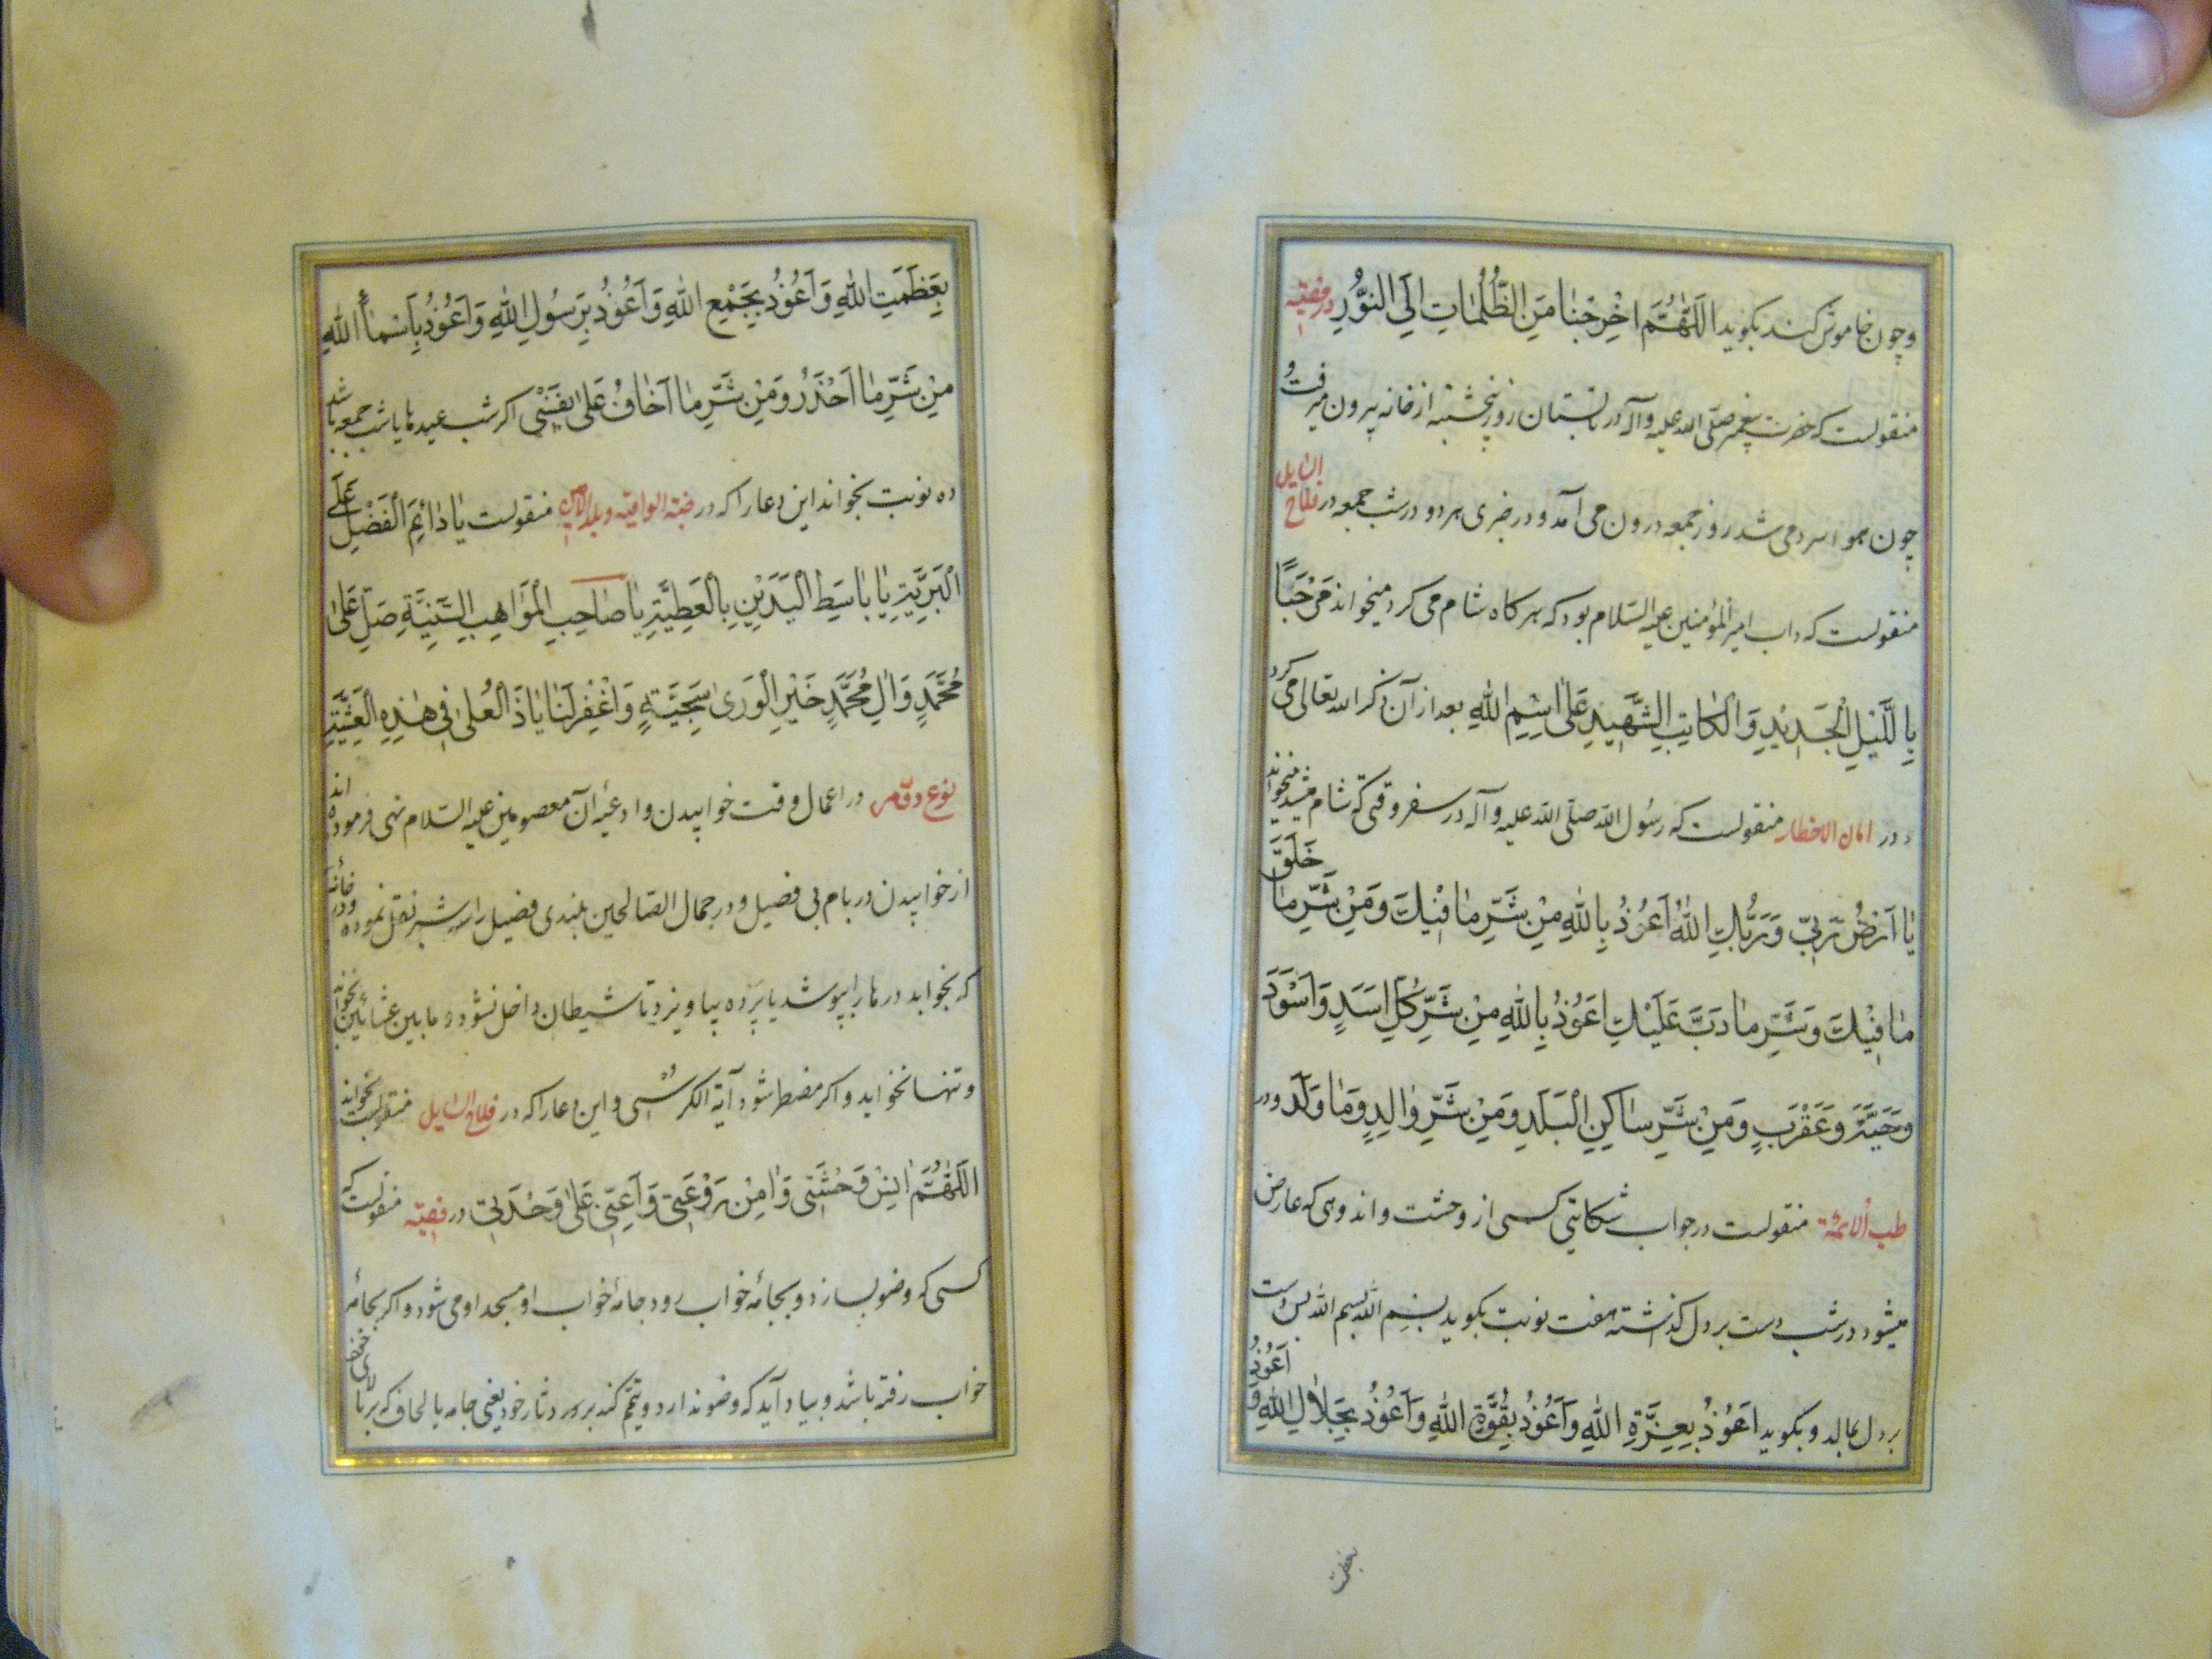 وچون خاموش کند بکوید اَللّٰهُمَّ اَخْرِجْنا مِنَ الظُّلُماتِ اِلَی النُّوْرِ در فقیه
منقولست که حضرت پیغمبر صلّی الله علیه وآله در تابستان روز پنجشنبه از خانه بیرون میرفت و
چون هوا سرد می شد روز جمعه درون می آمد و در خبری هر دو در شب جمعه در فلاح السایل
منقولست که داب امیر المؤمنین علیه السّلام بود که هر کاه شام می کرد میخواند مَرْحَبًا
بِاللَّیْلِ الْجَدیْدِ وَالْکاتِبِ الشَّهیْدِ عَلیٰ اسْمِ اللهِ بعد از آن ذکر الله تعالی می کرد
و در امان الاخطار منقولست که رسُول الله صلّی الله علیه وآله در سفر وقتی که شام میشد میخواند
یٰا اَرْضُ رَبّیْ وَرَبُّكِ اللهُ اَعُوْذُ بِاللهِ مِنْ شَرِّ مٰا فِیْكِ وَمِنْ شَرِّ مٰا خَلَقَ
مٰا فِیْكِ وَشَرِّ مٰا دَبَّ عَلَیْكِ اَعُوْذُ بِاللهِ مِنْ شَرِّ کُلِّ اَسَدٍ وَاَسْوَدَ
وَحَیَّةٍ وَعَقْرَبٍ وَمِنْ شَرِّ سٰاکِنِ الْبَلَدِ وَمِنْ شَرِّ وٰالِدٍ وَمٰا وَلَدَ و در
طب الائمّة منقولست در جواب شکایتی کسی از وحشت و اندوهی که عارض
میشود در شب دست بر دل کذاشته هفت نوبت بکوید بِسْمِ الله بسم الله پس دست
بر دل بمالد و بکوید اَعُوْذُ بِعِزَّةِ اللهِ وَاَعُوْذُ بِقُوَّةِ اللهِ وَاَعُوْذُ بِجَلاٰلِ اللهِ وَ اَعُوْذُ
بعظمت
بِعَظَمَتِ اللهِ وَاَعُوْذُ بِجَمْعِ اللهِ وَاَعُوْذُ بِرَسُوْلِ اللهِ وَاَعُوْذُ بِاَسْمٰاءِ اللهِ
مِنْ شَرِّ مٰا اَحْذَرُ وَمِنْ شَرِّ مٰا اَخٰافُ عَلیٰ نَفْسْی اکر شب عیدها یا شب جمعه باشد
ده نوبت بخواند این دعا را که در جنّة الواقیه و بلد الامین منقولست یٰا دٰائِمَ الْفَضْلِ عَلَی
الْبَرِیَّةِ یٰا بٰاسِطَ الْیَدَیْنِ بِالْعَطِیَّةِ یٰا صٰاحِبَ الْمَوٰاهِبِ السَّنِیَّةِ صَلِّ عَلیٰ
مُحَمَّدٍ وَاٰلِ مُحَمَّدٍ خَیْرِ الْوَریٰ سَجِیَّةٍ وَاغْفِرْ لَنٰا یٰا ذَ الْعُلیٰ فِیْ هٰذِهِ الْعَشِیَّةِ
نوع دوّم در اعمال وقت خوابیدن و ادعیه آن معصومین علیه السّلام نهی فرموده اند
از خوابیدن در بام بی فصیل و در جمال الصّالحین بلندی فصیل را نقل نموده و در خانه
که بخوابد درها را بپوشد یا پرده بیاویزد تا شیطان داخل نشود و مابین عشائین نخوابد
و تنها نخوابد و اکر مضطر شود آیة الکرسی و این دعا را که در فلاح السایل منقولست بخواند
اَللّٰهُمَّ اٰنِسْ وَحْشَتی وَاٰمِنْ رَوْعَتیْ وَاَعِنّیْ عَلیٰ وَحْدَتیْ در فقیه منقولست که
کسی که وضو بسازد و بجامۀ خواب رود جامۀ خواب او مسجد او می شود و اکر بجامۀ
خواب رفته باشد و بیاد آید که وضو ندارد و تیمّم کند بر دثار خود یعنی جامه یا لحاف که بر بالای